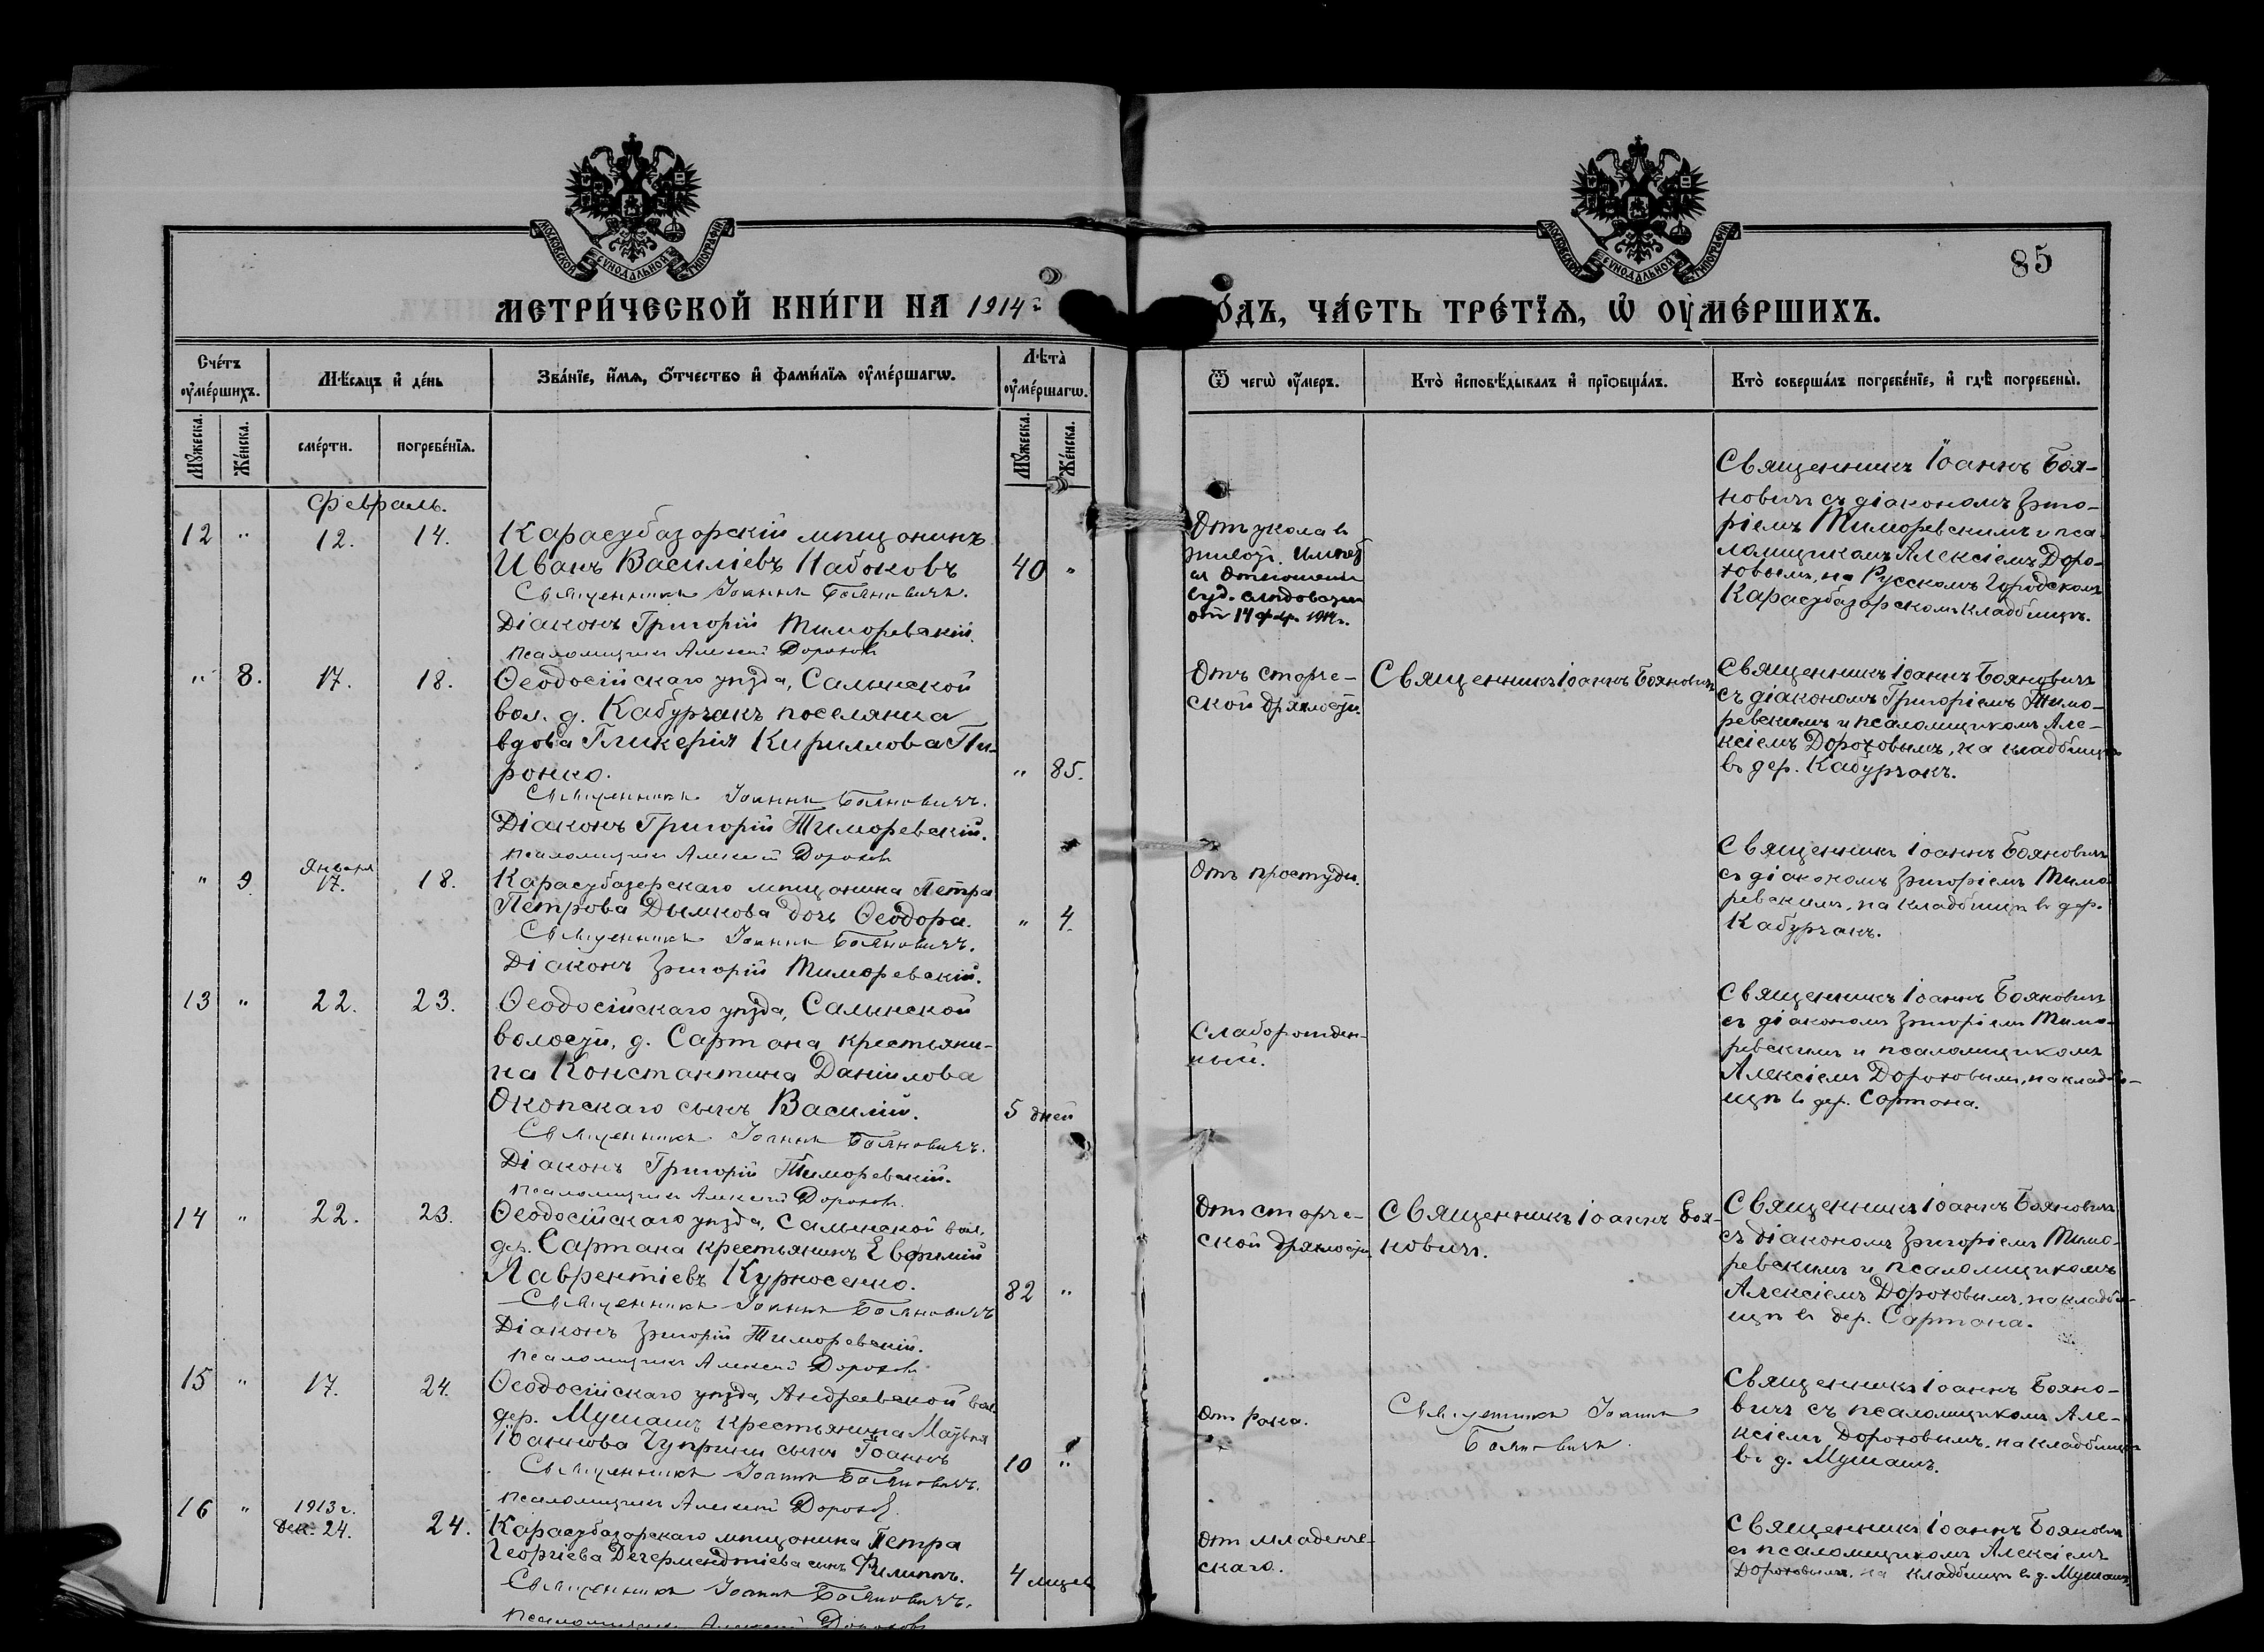 МОСКОВСКОЙ СѴНОДАЛЬНОЙ ТИПОГРАФІИ
МОСКОВСКОЙ СѴНОДАЛЬНОЙ ТИПОГРАФІИ
85
МЕТРИ́ЧЕСКОЙ КНИ́ГИ НА 1914 г.
О́ДЪ, ЧА́СТЬ ТРЕ́ТІѦ, Ѡ ОУМЕ́РШИХЪ.
Сче́тъ оуме́ршихъ.
Мѣ́сяцъ и де́нь
Зва́нїе, и́мѧ, о́тчество и фами́лїѧ оуме́ршагѡ.
Лѣта̀ оуме́ршагѡ.
Ѿ чегѡ̀ оу́меръ.
Кто̀ исповѣ́дывалъ и прїѡбща́лъ.
Кто̀ соверша́лъ погребе́нїе, и гдѣ̀ погребены̀.
Мꙋ́жеска.
Же́нска.
сме́рти.
погребе́нїѧ.
Мꙋ́жеска.
Же́нска.
Февраль.
12 " 12. 14.
Карасубазарскій мѣщанинъ
Иванъ Василіевъ Набоковъ
40 "
Священникъ Іоаннъ Бояновичъ.
Діаконъ Григорій Тиморевскій.
Псаломщикъ Алексій Дорохов
Отъ укола в
живот.
отношеніи
суд. слѣдователя
отъ 14 фев. 1914 г.
Священникъ Іоаннъ Боя-
новичъ съ діакономъ Григо-
ріемъ Тиморевскимъ и пса-
ломщикомъ Алексіемъ Доро-
ховымъ, на Русскомъ Городскомъ
Карасубазарскомъ кладбищѣ.
" 8. 17. 18.
Ѳеодосійскаго уѣзда, Салынской
вол. д. Кабурчакъ поселянка
вдова Гликерія Кириллова Пи-
ронко.
" 85.
Священникъ Іоаннъ Бояновичъ.
Діаконъ Григорій Тиморевскій.
Псаломщикъ Алексій Дорохов
Отъ старче-
ской дряхлости.
Священникъ Іоаннъ Бояновичъ
Священникъ Іоаннъ Бояновичъ
съ діакономъ Григоріемъ Тимо-
ревскимъ и псаломщикомъ Але-
ксіемъ Дороховымъ, на кладбищѣ
въ дер. Кабурчакъ.
" 9. Января 17. 18.
Карасубазарскаго мѣщанина Петра
Петрова Дымкова дочь Ѳеодора.
" 4.
Священникъ Іоаннъ Бояновичъ.
Діаконъ Григорій Тиморевскій.
Отъ простуды.
Священникъ Іоаннъ Бояновичъ
съ діакономъ Григоріемъ Тимо-
ревскимъ, на кладбищѣ въ дер.
Кабурчакъ.
13 " 22. 23.
Ѳеодосійскаго уѣзда, Салынской
волости, д. Сартана крестьяни-
на Константина Даніилова
Окопскаго сынъ Василій.
5 дней
Священникъ Іоаннъ Бояновичъ.
Діаконъ Григорій Тиморевскій.
Псаломщикъ Алексій Дорохов.
Слаборожден-
ный.
Священникъ Іоаннъ Бояновичъ
съ діакономъ Григоріемъ Тимо-
ревскимъ и псаломщикомъ
Алексіемъ Дороховымъ, на кладби-
щѣ въ дер. Сартана.
14 " 22. 23.
Ѳеодосійскаго уѣзда, Салынской вол.
дер. Сартана крестьянинъ Евфимій
Лаврентіевъ Курносенко.
82 "
Священникъ Іоаннъ Бояновичъ
Діаконъ Григорій Тиморевскій.
Псаломщикъ Алексій Дорохов
Отъ старче-
ской дряхлости
Священникъ Іоаннъ Боя-
новичъ.
Священникъ Іоаннъ Бояновичъ
съ діакономъ Григоріемъ Тимо-
ревскимъ и псаломщикомъ
Алексіемъ Дороховымъ, на кладби-
щѣ въ дер. Сартана.
15 " 17. 24.
Ѳеодосійскаго уѣзда, Андреевской вол.
дер. Мушашъ крестьянина
Іоаннова Чуприны сынъ Іоаннъ
10 "
Священникъ Іоаннъ Бояновичъ.
Псаломщикъ Алексій Дорохов.
Отъ рака.
Священникъ Іоаннъ
Бояновичъ.
Священникъ Іоаннъ Бояно-
вичъ съ псаломщикомъ Але-
ксіемъ Дороховымъ, на кладбищѣ
въ д. Мушашъ.
16 " 1913 г. Дек. 24. 24.
Карасубазарскаго мѣщанина Петра
Георгіева Дегермендтіева сынъ Филиппъ.
4 мѣсяц.
Священникъ Іоаннъ Бояновичъ.
Псаломщикъ Алексій Дорохов
Отъ младенче-
скаго.
Священникъ Іоаннъ Бояновичъ
съ псаломщикомъ Алексіемъ
Дороховымъ, на кладбищѣ въ д. Мушашъ